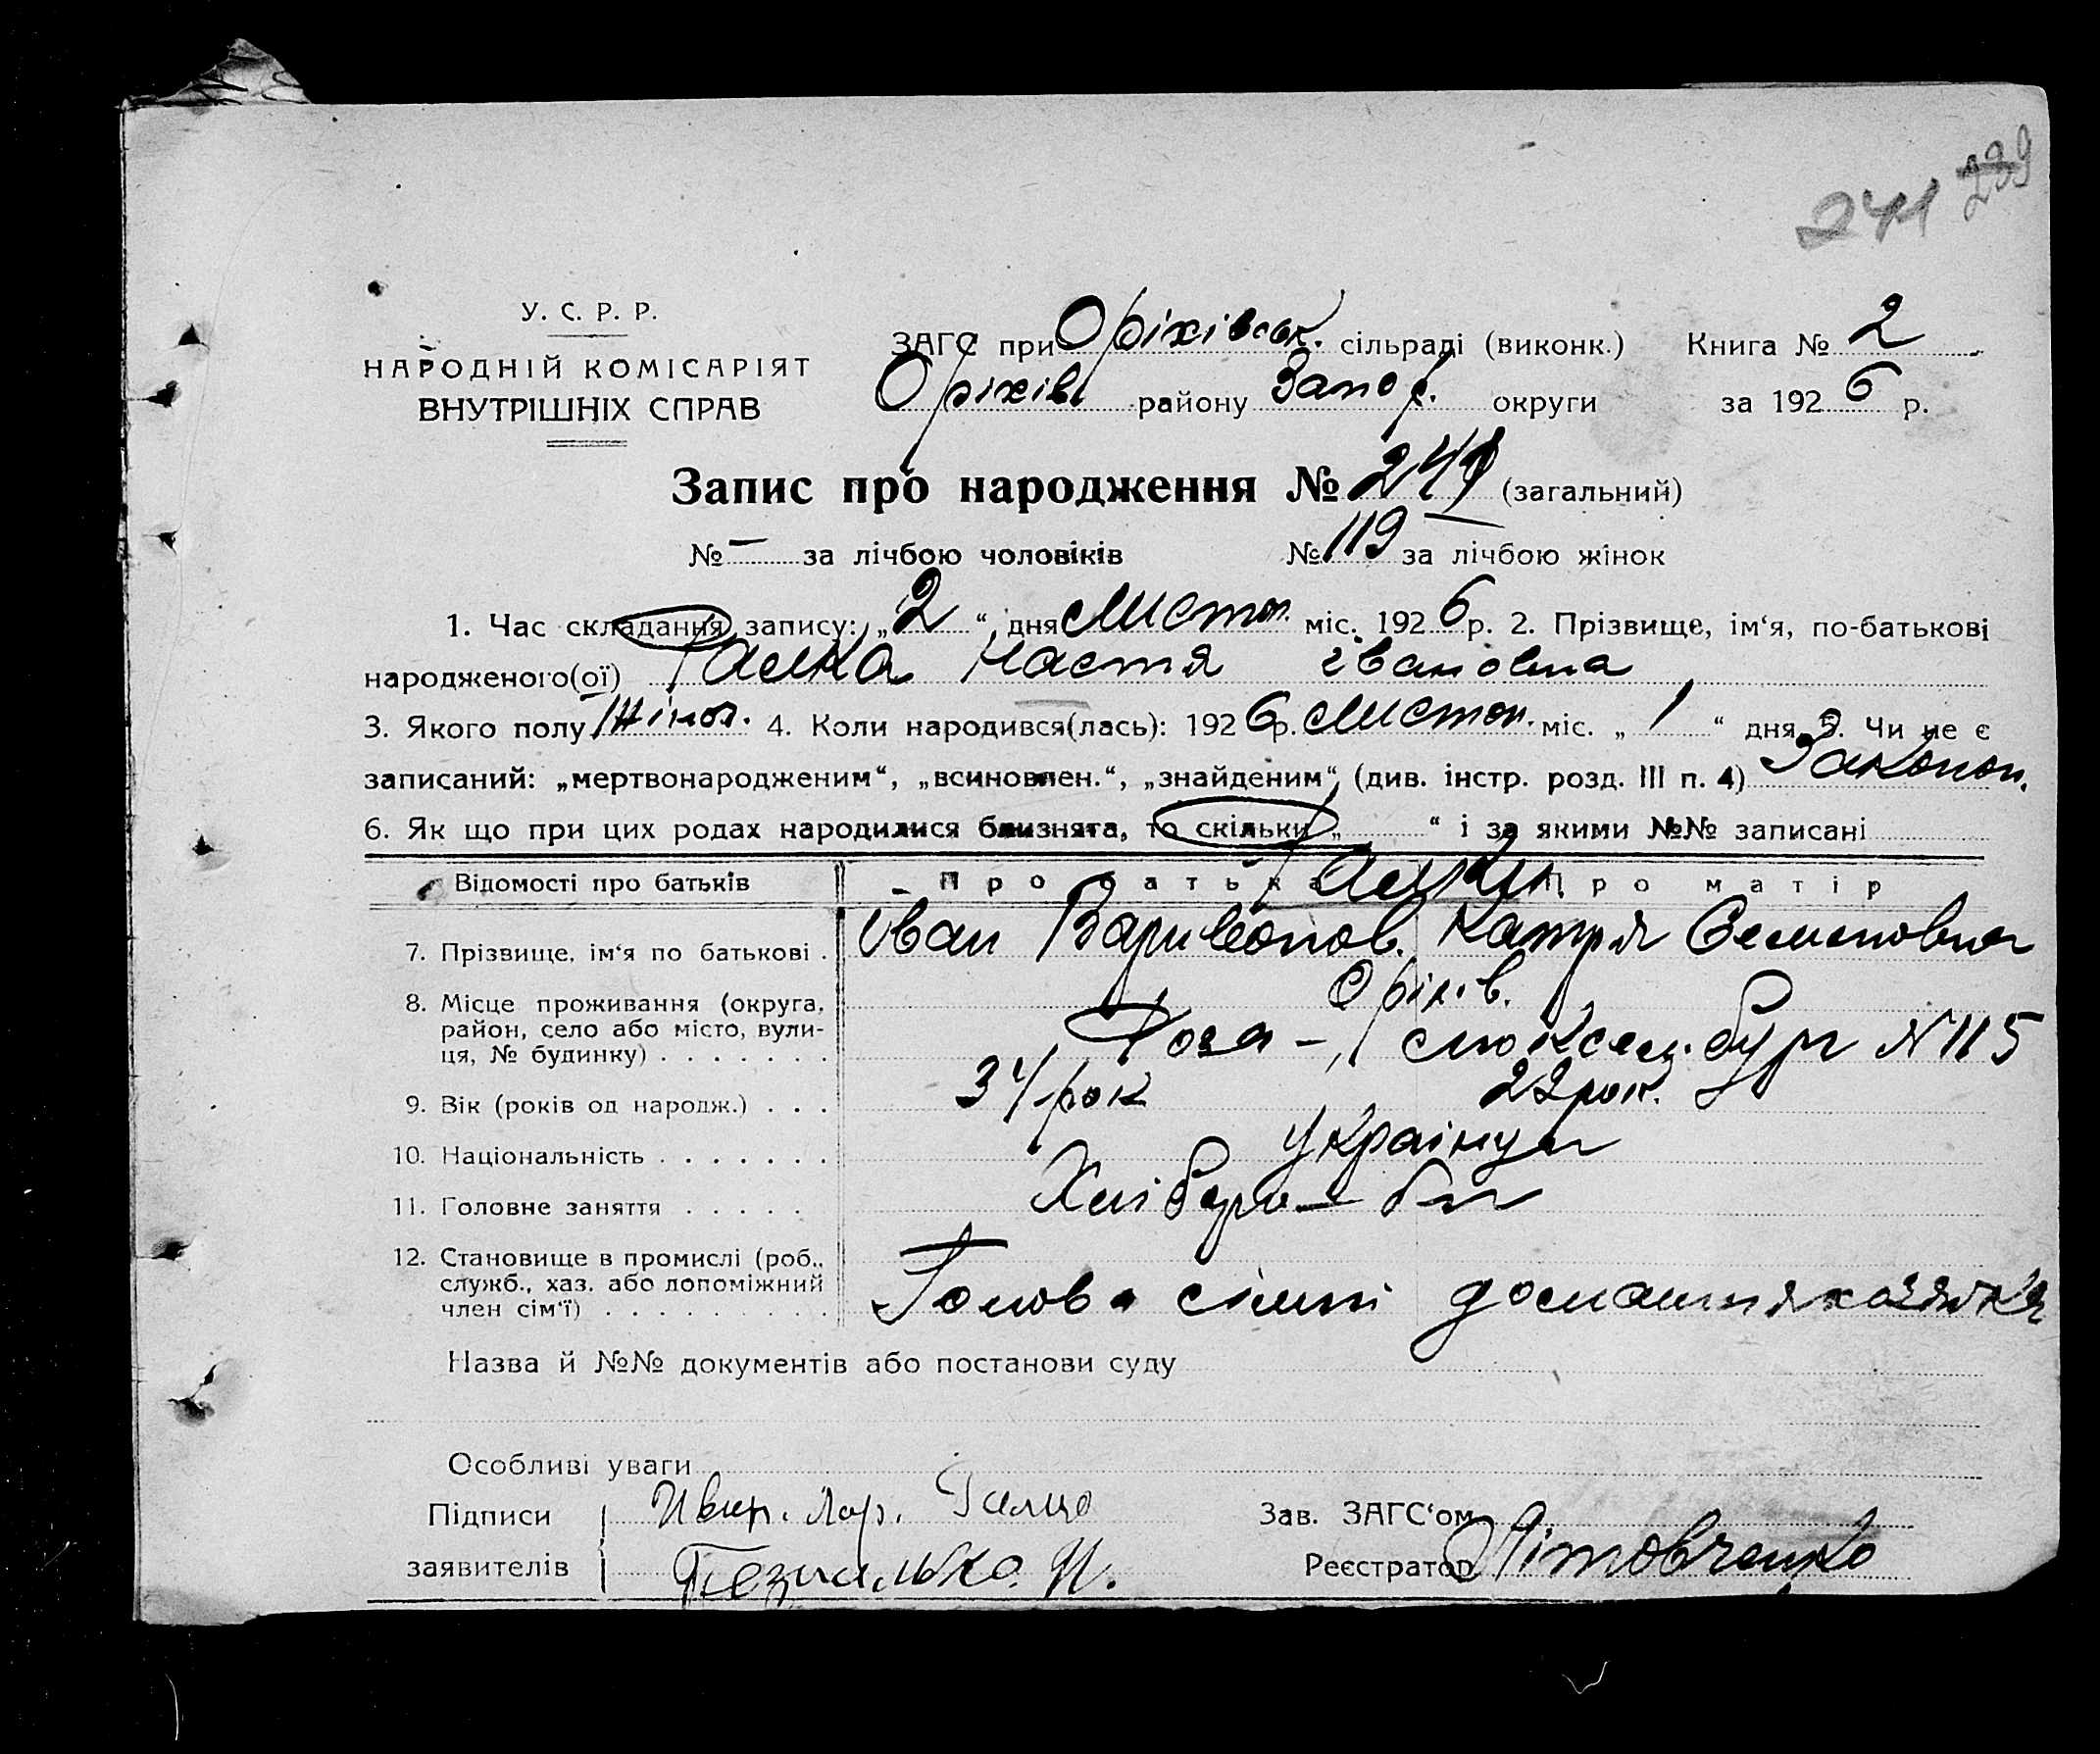 241 239
У. С. Р. Р.
НАРОДНІЙ КОМІСАРІЯТ
ВНУТРІШНІХ СПРАВ
ЗАГС при Оріхівськ. сільраді (виконк.) Книга № 2
Оріхів району Запор. округи за 1926 р.
Запис про народження № 241 (загальний)
№ — за лічбою чоловіків № 119 за лічбою жінок
1. Час складання запису: „2“ дня листоп. міс. 1926 р. 2. Прізвище, ім‘я, по-батькові
народженого(ої) Галка Настя Івановна
3. Якого полу Жіноч. 4. Коли народився(лась): 1926 р. листоп. міс. „1“ дня 5. Чи не є
записаний: „мертвонародженим“, „всиновлен.“, „знайденим“, (див. інстр. розд. III п. 4) Законон.
6. Як що при цих родах народилися близнята, то скільки „ “ і за якими №№ записані
Відомості про батьків Про батька Про матір
Галки
7. Прізвище, ім‘я по батькові . Іван Каtря Семеновна
8. Місце проживання (округа, район, село або місто, вулиця, № будинку) . . . . . . . Оріхів.
Роза - Люксембург № 115
9. Вік (років од народж.) . . . 34 рок 22 рок.
10. Національність . . . . . . . Українці
11. Головне заняття . . . . . Хлібороб-би
12. Становище в промислі (роб., служб., хаз. або допоміжний член сім‘ї) . . . . . . . . . Голова сімьі домашня хазяйка
Назва й №№ документів або постанови суду
Особливі уваги
Підписи Иван. Лар. Галка Зав. ЗАГС‘ом
заявителів Реєстратор Літовченко